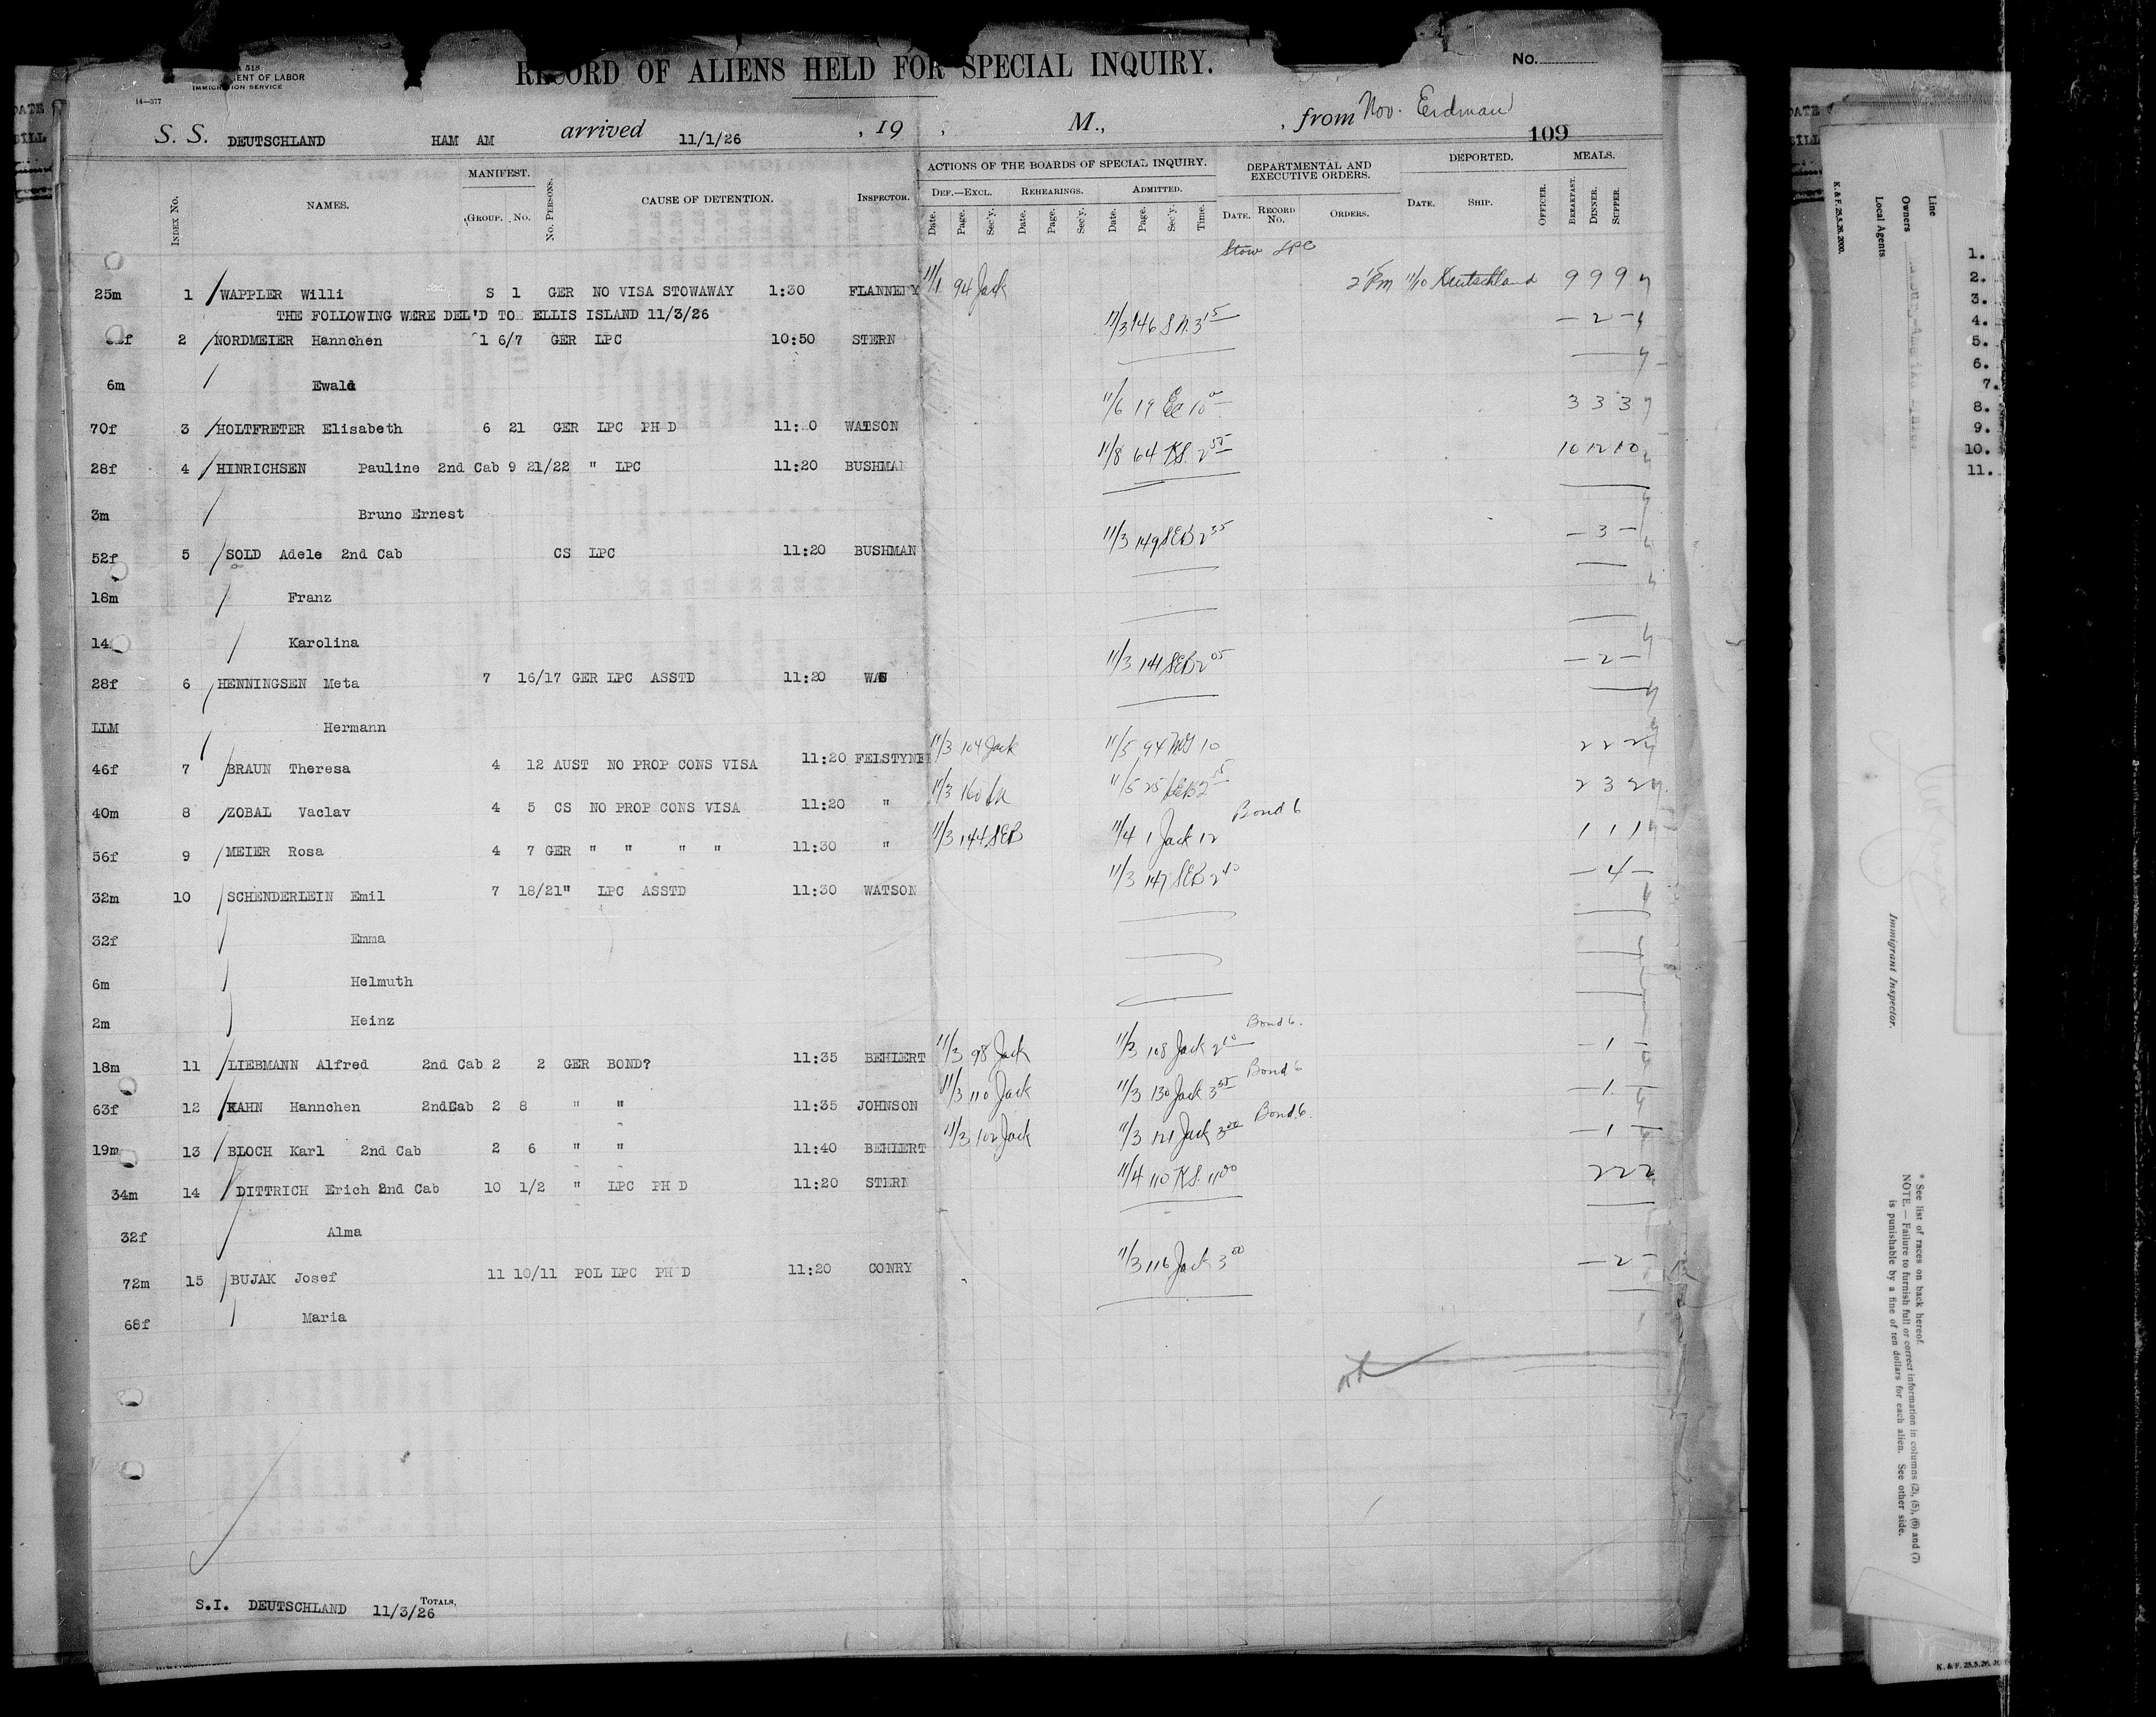 518
ENT OF LABOR
IMMIGRATION SERVICE
14—377
RECORD OF ALIENS HELD FOR SPECIAL INQUIRY.
No.
S. S. DEUTSCHLAND HAM AM arrived 11/1/26 , 19 , M., , from Nov. Erdman
109
INDEX No. NAMES. MANIFEST. GROUP. No. No. PERSONS. CAUSE OF DETENTION. INSPECTOR. ACTIONS OF THE BOARDS OF SPECIAL INQUIRY. DEPARTMENTAL AND EXECUTIVE ORDERS. DEPORTED. MEALS.
DEF.—EXCL. REHEARINGS. ADMITTED.
Date. Page. Sec'y. Date. Page. Sec'y. Date. Page. Sec'y. Time. DATE. RECORD No. ORDERS. DATE. SHIP. OFFICER. BREAKFAST. DINNER. SUPPER.
Stow LPC
25m 1 WAPPLER Willi S 1 GER NO VISA STOWAWAY 1:30 FLANNERY 11/1 94 Jack 11/10 Deutschland 9 9 9
THE FOLLOWING WERE DEL'D TO ELLIS ISLAND 11/3/26
2 NORDMEIER Hannchen 1 6/7 GER LPC 10:50 STERN 11/3 146 S N. 3 15 — 2 —
6m Ewald
70f 3 HOLTFRETER Elisabeth 6 21 GER LPC PH D WATSON 11/6 19 10 3 3 3
28f 4 HINRICHSEN Pauline 2nd Cab 9 21/22 " LPC 11:20 BUSHMAN 11/8 64 KS. 2 55 10 12 10
3m Bruno Ernest
52f 5 SOLD Adele 2nd Cab CS LPC 11:20 BUSHMAN 11/3 149 SEB 2 35 — 3 —
18m Franz
14 Karolina
28f 6 HENNINGSEN Meta 7 16/17 GER LPC ASSTD 11:20 11/3 141 SEB 2 05 — 2 —
LLM Hermann
46f 7 BRAUN Theresa 4 12 AUST NO PROP CONS VISA 11:20 11/3 104 Jack 11/5 94 10 2 2 2
40m 8 ZOBAL Vaclav 4 5 CS NO PROP CONS VISA 11:20 " 11/3 160 11/5 25 SEB 2 15 2 3 2
56f 9 MEIER Rosa 4 7 GER " " " " 11:30 " 11/3 144 SEB 11/4 1 Jack 12 Bond 6 1 1 1
32m 10 SCHENDERLEIN Emil 7 18/21 " LPC ASSTD 11:30 WATSON 11/3 147 SEB 2 40 — 4 —
32f Emma
6m Helmuth
2m Heinz
18m 11 LIEBMANN Alfred 2nd Cab 2 2 GER BOND? 11:35 BEHLERT 11/3 98 Jack 11/3 108 Jack 2 10 Bond 6. — 1 —
63f 12 KAHN Hannchen 2ndCab 2 8 " " 11:35 JOHNSON 11/3 110 Jack 11/3 130 Jack 3 35 Bond 6 — 1 —
19m 13 BLOCH Karl 2nd Cab 2 6 " " 11:40 BEHLERT 11/3 102 Jack 11/3 121 Jack 3 00 Bond 6. — 1 —
34m 14 DITTRICH Erich 2nd Cab 10 1/2 " LPC PH D 11:20 STERN 11/4 110 KS. 11 00 2 2 2
32f Alma
72m 15 BUJAK Josef 11 10/11 POL LPC PH D 11:20 CONRY 11/3 116 Jack 3 00 — 2 —
68f Maria
S.I. DEUTSCHLAND 11/3/26 TOTALS.
K. & F. 25.5.26. 2000.
Local Agents
Owners
Line
1.
2.
3.
4.
5.
6.
7.
8.
9.
10.
11.
Immigrant Inspector.
* See list of races on back hereof.
NOTE.— Failure to furnish full or correct information in columns (2), (5), (6) and (7)
is punishable by a fine of ten dollars for each alien. See other side.
K. & F. 25.5.26.